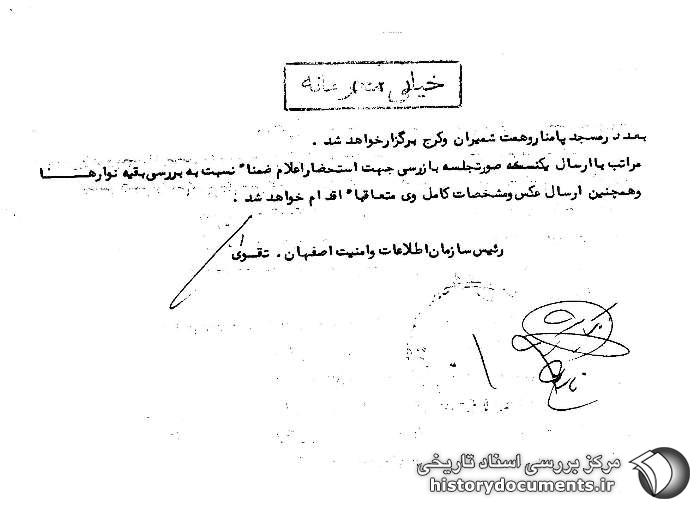 خیلی محرمانه
بعد در مسجد پامنار و همت شمیران و کرج برگزار خواهد شد .
مراتب با ارسال یکنسخه صورتجلسه بازرسی جهت استحضار اعلام ضمناً نسبت به بررسی بقیه نوارها
و همچنین ارسال عکس و مشخصات کامل وی متعاقباً اقدام خواهد شد .
رئیس سازمان اطلاعات و امنیت اصفهان . تقوی
مرکز بررسی اسناد تاریخی
historydocuments.ir